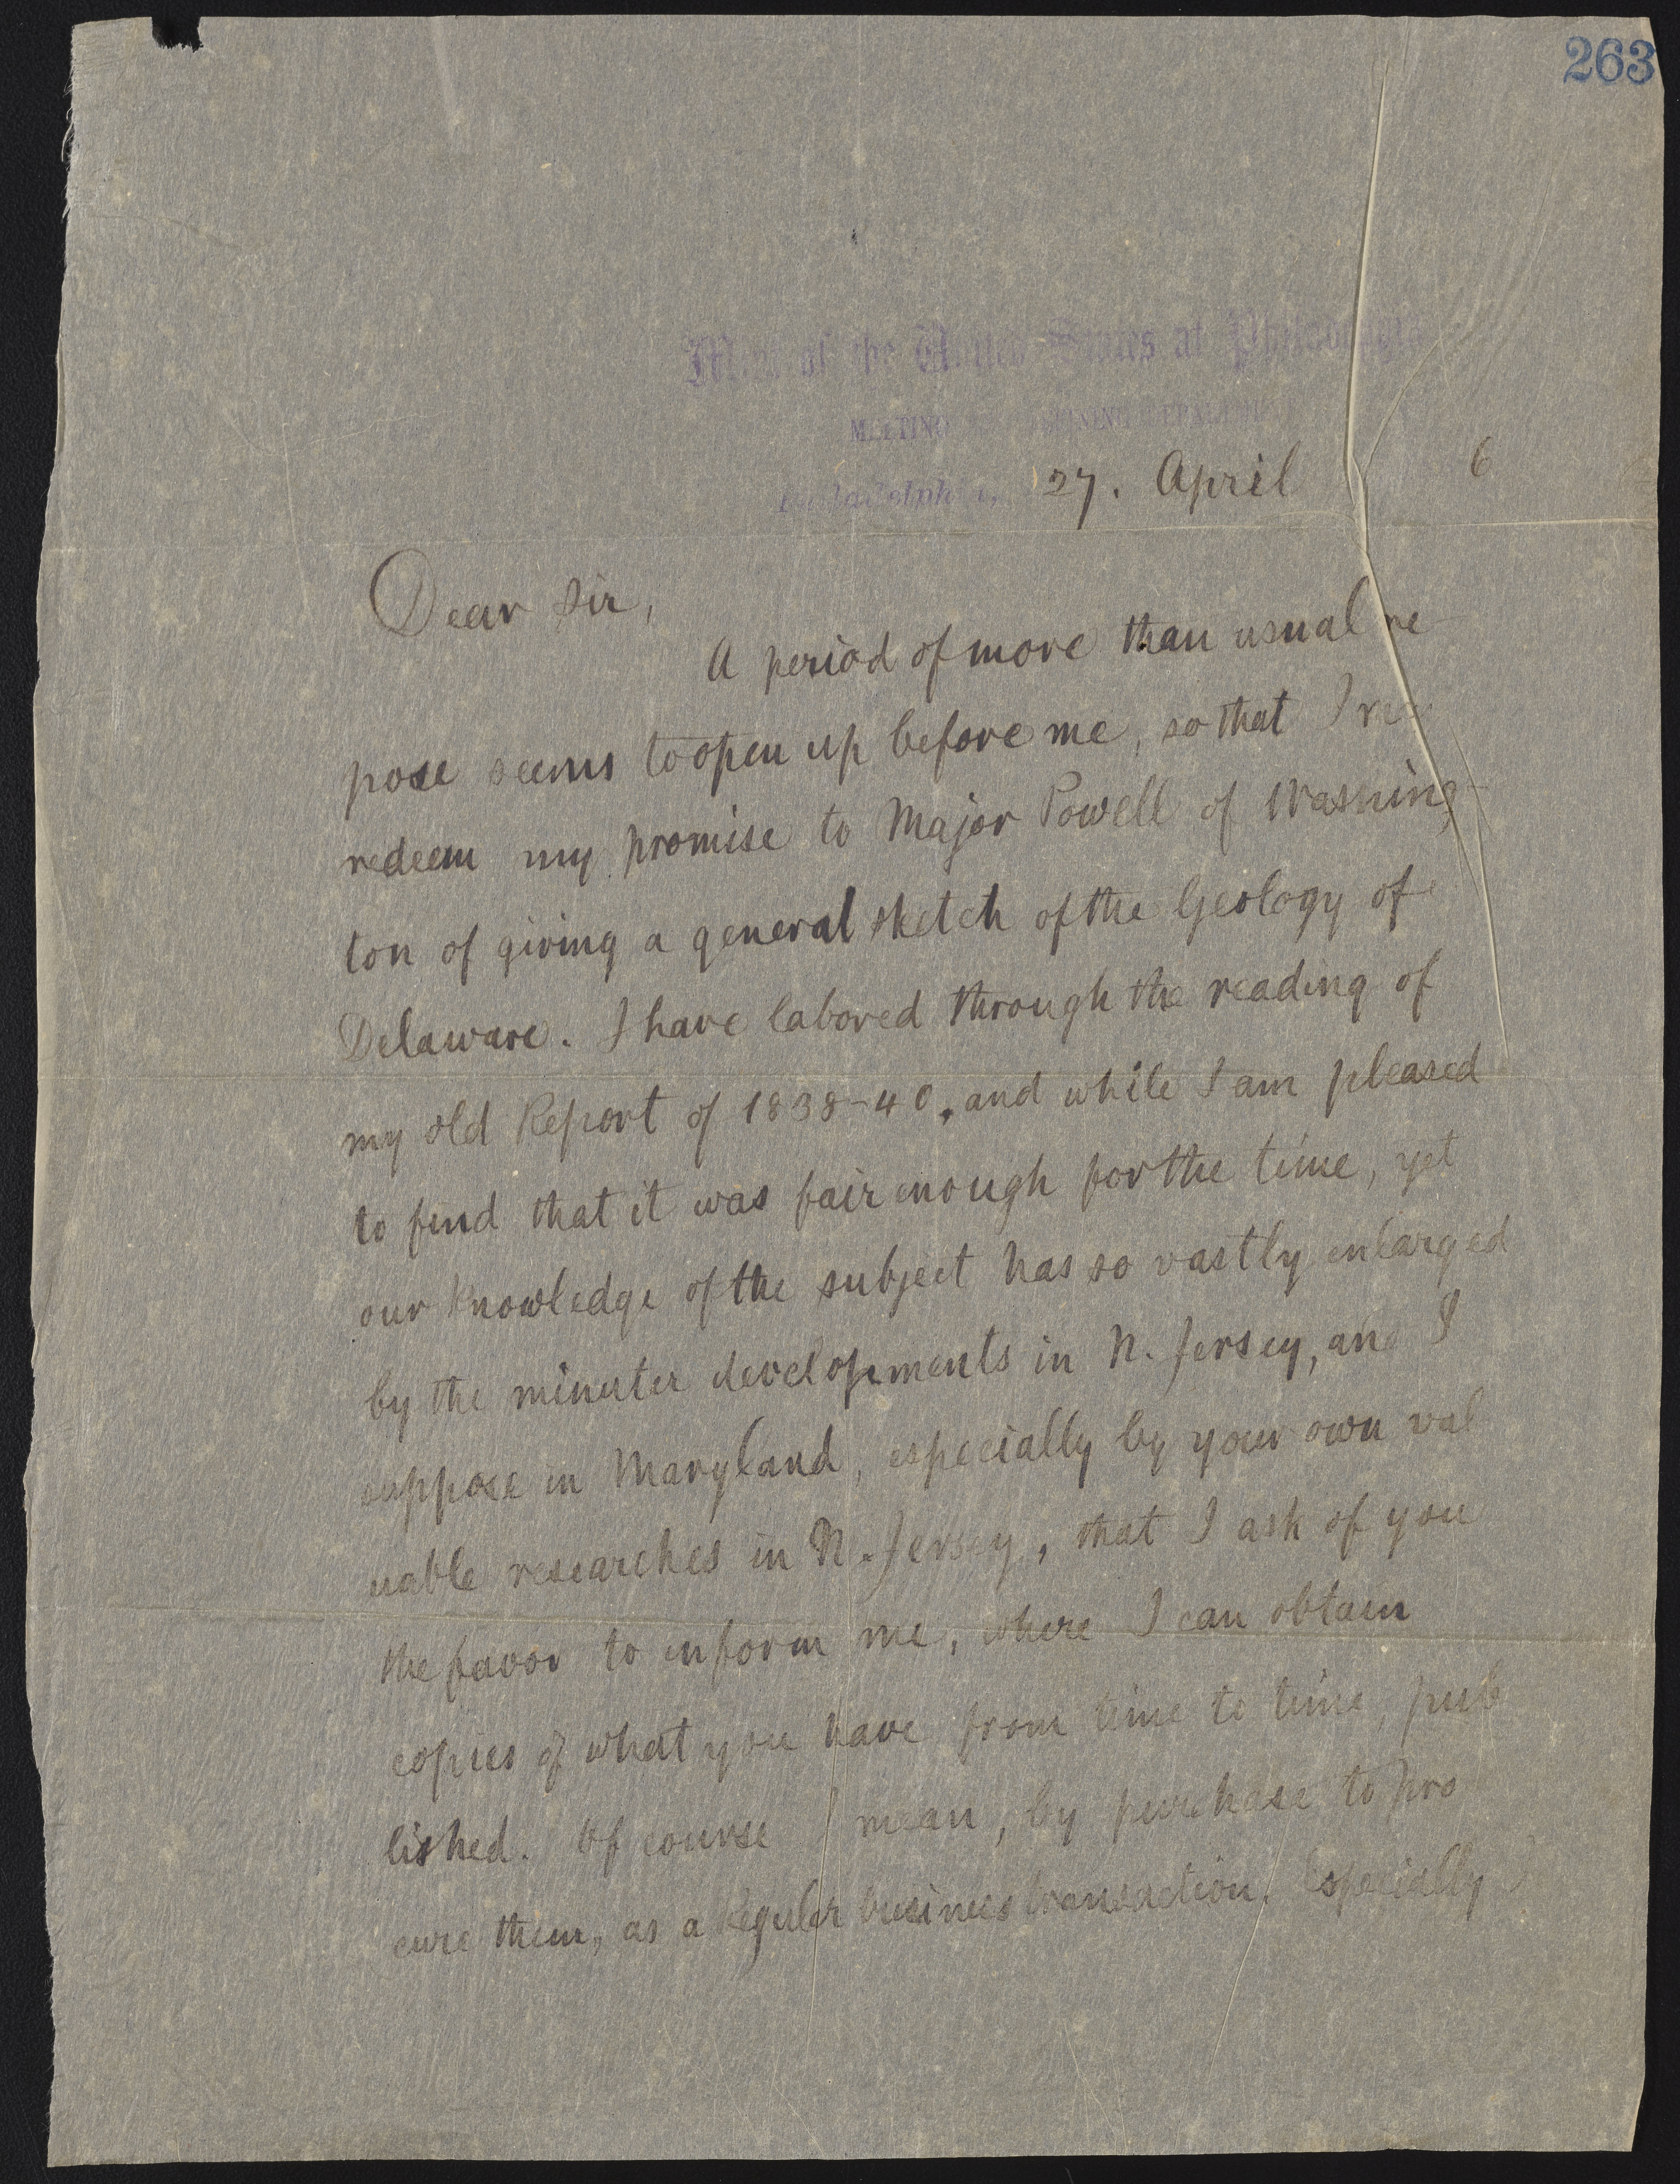 263
Mint of the United States at Philadelphia
MELTING REFINING DEPARTMENT
Philadelphia, 27. April 6
Dear Sir,
A period of more than usual re-
pose seems to open up before me, so that I may
redeem my promise to Major Powell of Washing-
ton of giving a general sketch of the Geology of
Delaware. I have labored through the reading of
my old Report of 1838-40, and while I am pleased
to find that it was fair enough for the time, yet
our knowledge of the subject has so vastly enlarged
by the minuter developments in N. Jersey, and I
suppose in Maryland, especially by your own val
uable researches in N. Jersey, that I ask of you
the favor to inform me, where I can obtain
copies of what you have from time to time pub
lished. Of course I mean, by purchase to pro
cure them, as a regular business transaction. Especially